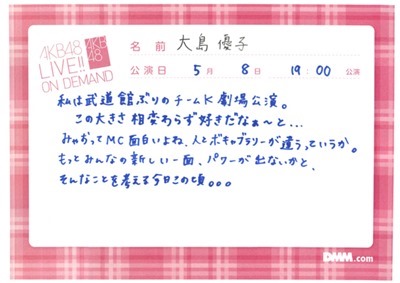 AKB48
LIVE!!
ON DEMAND
AKB
48
名前 大島優子
公演日 5月 8日 19:00 公演
私は武道館ぶりのチームK劇場公演。
この大きさ相変わらず好きだなぁ〜と...
みゃおってMC面白いよね、人とボキャブラリーが違うっていうか。
もっとみんなの新しい一面、パワーが出ないかと、
そんなことを考える今日この頃。。。
DMM.com